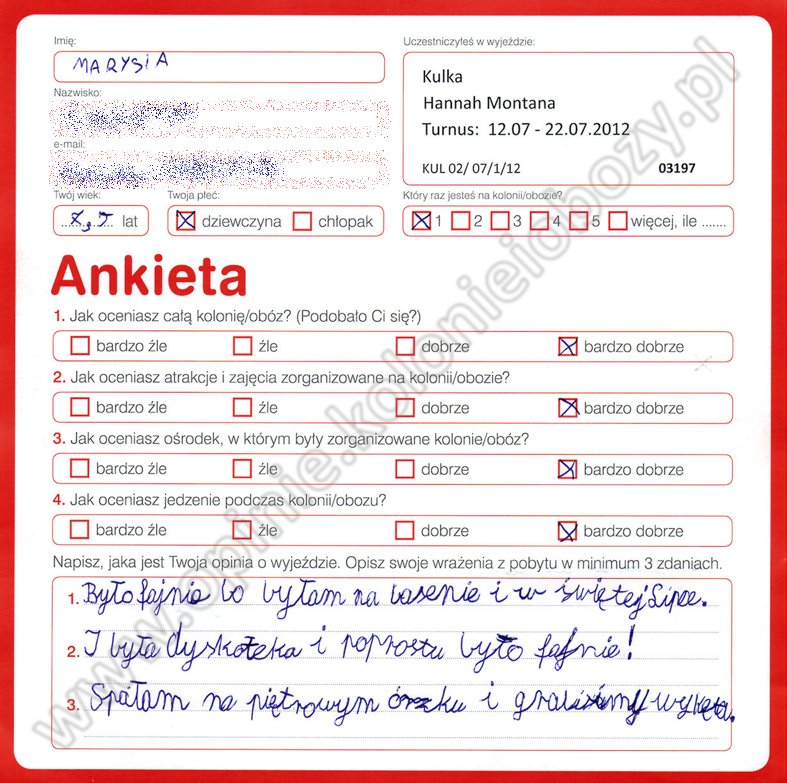 Imię:
MARYSIA
Uczestniczyłeś w wyjeździe:
Kulka
Hannah Montana
Turnus: 12.07 - 22.07.2012
KUL 02/ 07/1/12 03197
Nazwisko:
e-mail:
Twój wiek:
7,5 lat
Twoja płeć:
dziewczyna chłopak
Który raz jesteś na kolonii/obozie?
1 2 3 4 5 więcej, ile .......
Ankieta
1. Jak oceniasz całą kolonię/obóz? (Podobało Ci się?)
bardzo źle źle dobrze bardzo dobrze
2. Jak oceniasz atrakcje i zajęcia zorganizowane na kolonii/obozie?
bardzo źle źle dobrze bardzo dobrze
3. Jak oceniasz ośrodek, w którym były zorganizowane kolonie/obóz?
bardzo źle źle dobrze bardzo dobrze
4. Jak oceniasz jedzenie podczas kolonii/obozu?
bardzo źle źle dobrze bardzo dobrze
Napisz, jaka jest Twoja opinia o wyjeździe. Opisz swoje wrażenia z pobytu w minimum 3 zdaniach.
1. Było fajnie bo byłam na basenie i w świętej Lipce.
2. I była dyskoteka i poprostu było fajnie!
3. Spałam na piętrowym i w
www.opinie.kolonieiobozy.pl